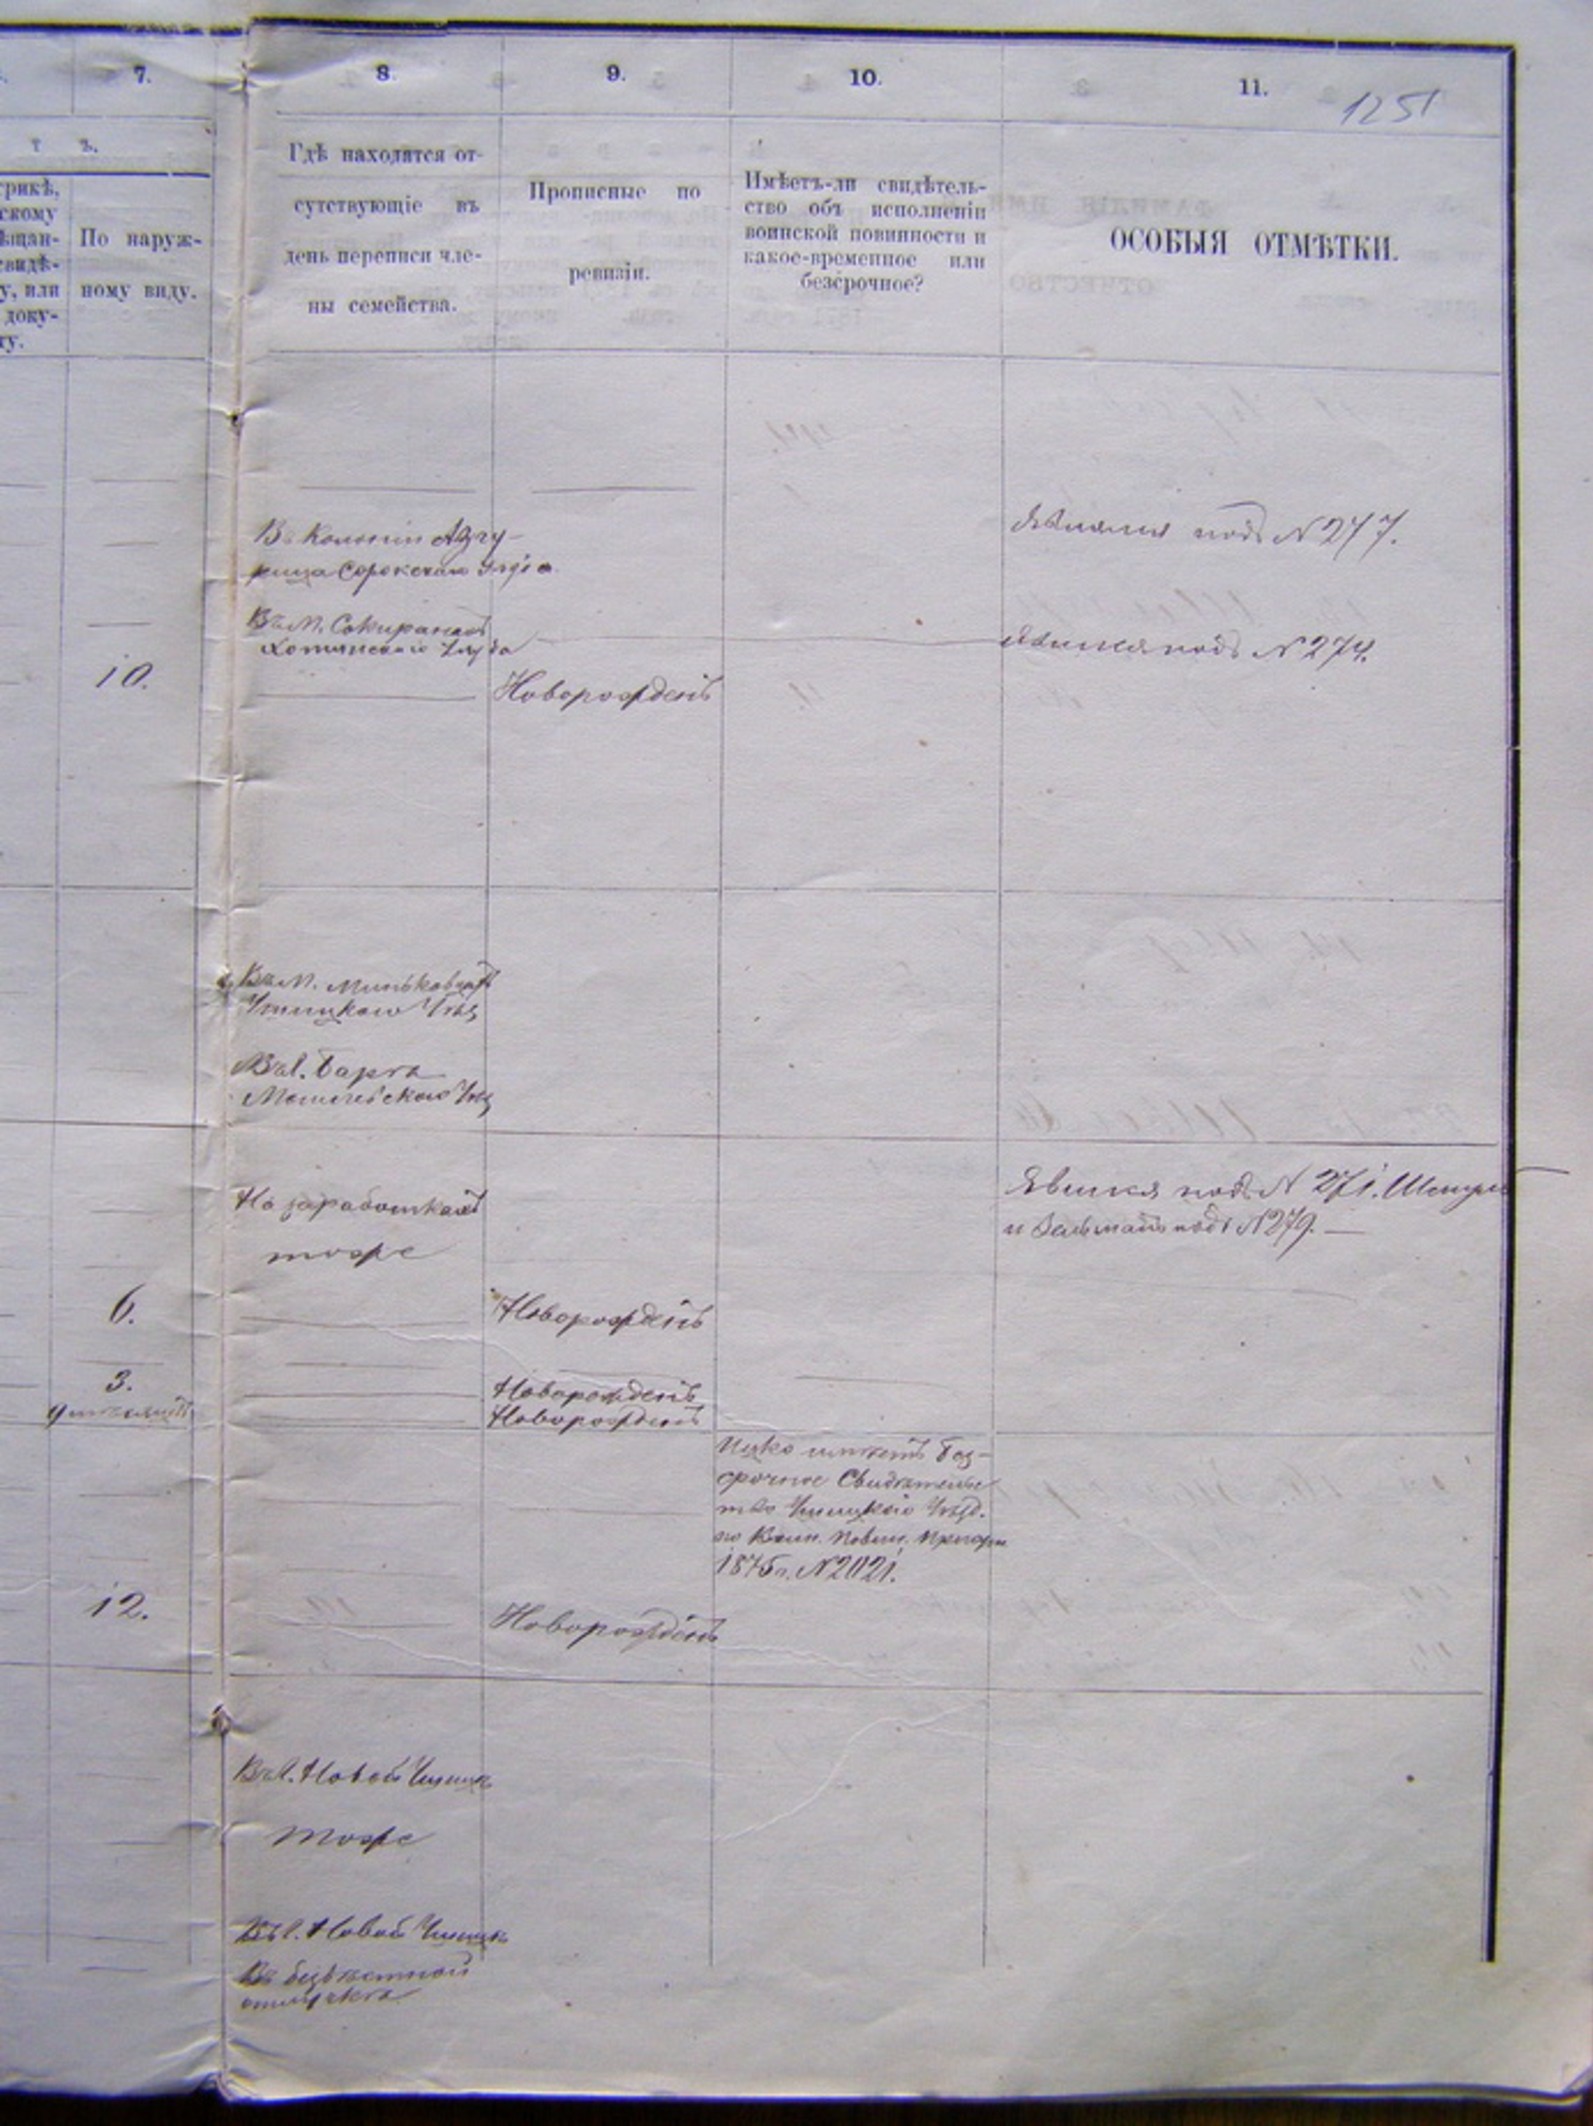 7.
8.
9.
10.
11.
1251
т ъ.
трикѣ,
скому
ѣщан-
свидѣ-
у, или
доку-
ту.
По наруж-
ному виду.
Гдѣ находятся от-
сутствующіе въ
день переписи чле-
ны семейства.
Прописные по
ревизіи.
Имѣетъ-ли свидѣтель-
ство объ исполненіи
воинской повинности и
какое-временное или
безсрочное?
ОСОБЫЯ ОТМѢТКИ.
Въ Колоніи Згу-
рица Сорокскаго Уѣзда
подъ N 247.
Въ М. Сокиранахъ
Хотинскаго Уѣзда
подъ N 274.
10.
Новорожденъ
Въ М. Миньковцахъ
Ушицкаго Уѣз
Въ с.
Могилевскаго Уѣз
На заработкахъ
Явился подъ N 271.
и Зельманъ подъ N 279.
тоже
6.
Новорожденъ
3.
Новорожденъ
Новорожденъ
Ицко имѣетъ без-
срочное Свидѣтельс
тво Ушицкаго Уѣзд.
по Воин. Повин. Присут.
1875 г. N 2021.
12.
Новорожденъ
Въ Новой Ушицѣ
тоже
Въ Новой Ушицѣ
Въ безвѣстной
отлучкѣ